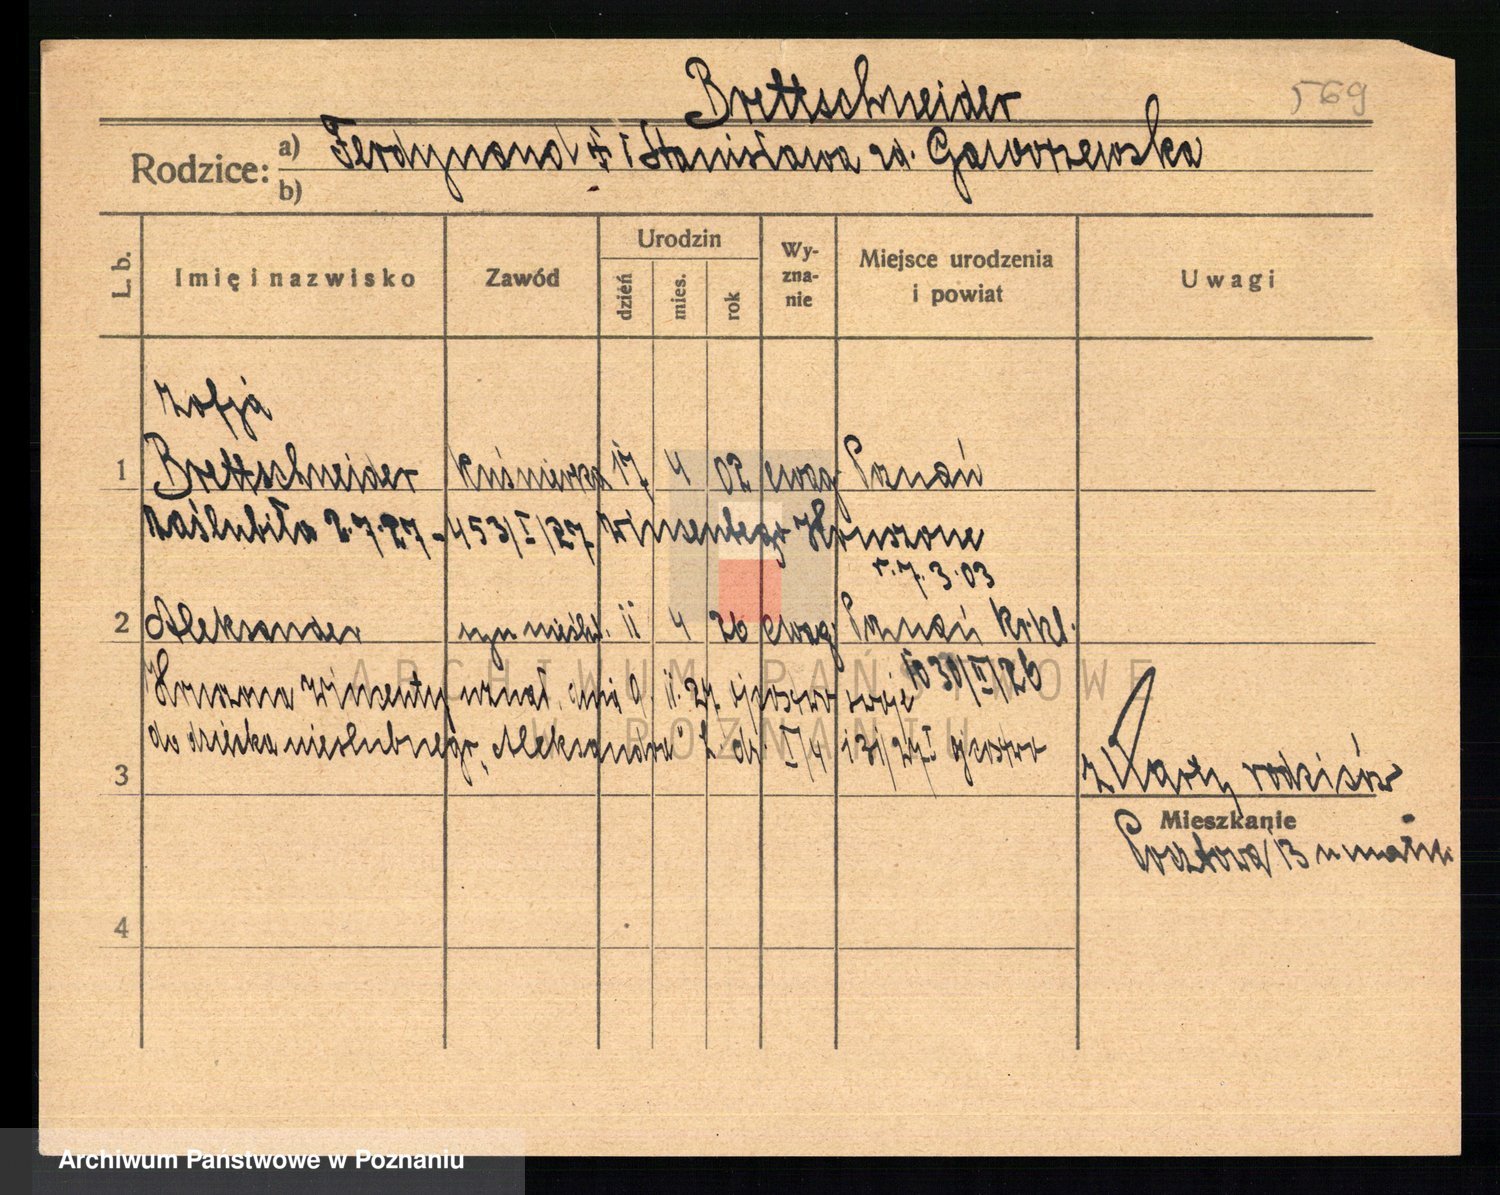 Brettschneider 569
Rodzice: a) Ferdynand † i Stanisława zd. Gaworzewska
b)
L. b. Imię i nazwisko Zawód Urodzin dzień mies. rok Wyznanie Miejsce urodzenia i powiat Uwagi
Zofja
1 Brettschneider Kuśnierka 17 4 02 ewag. Poznań
zaślubiła 2.7.27 - 453/I/27 Wincentego
r. 7.3.03
2 Aleksander syn nieślub. 11 4 26 ewag. Poznań
1030/II/26
Wincenty uznał dnia 9. 11. 27 ojcostwo swoje
do dziecka nieślubnego „Aleksandra" L. dz. I/4 131/27/I ojcostwo
3
z Karty rodziców
Mieszkanie
Pocztowa 13 u matki
4
ARCHIWUM PAŃSTWOWE
W POZNANIU
Archiwum Państwowe w Poznaniu